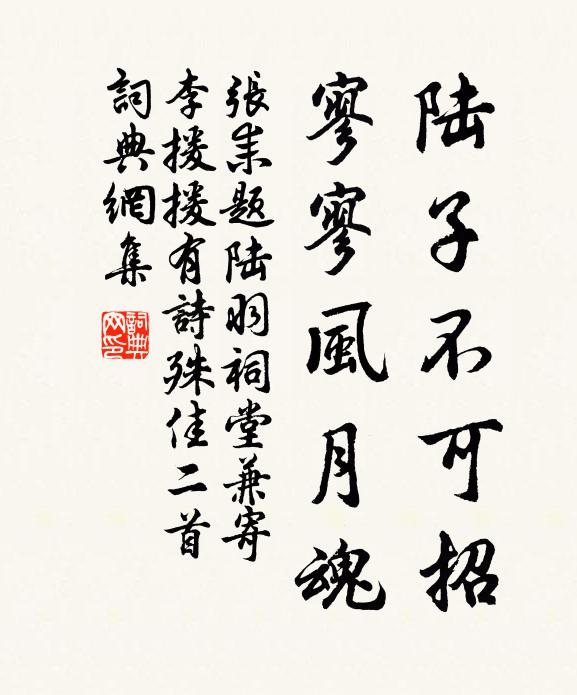 陆子不可招
寥寥風月魂
張耒題陆羽祠堂兼寄
李援援有詩殊佳二首
詞典網集
詞典网印